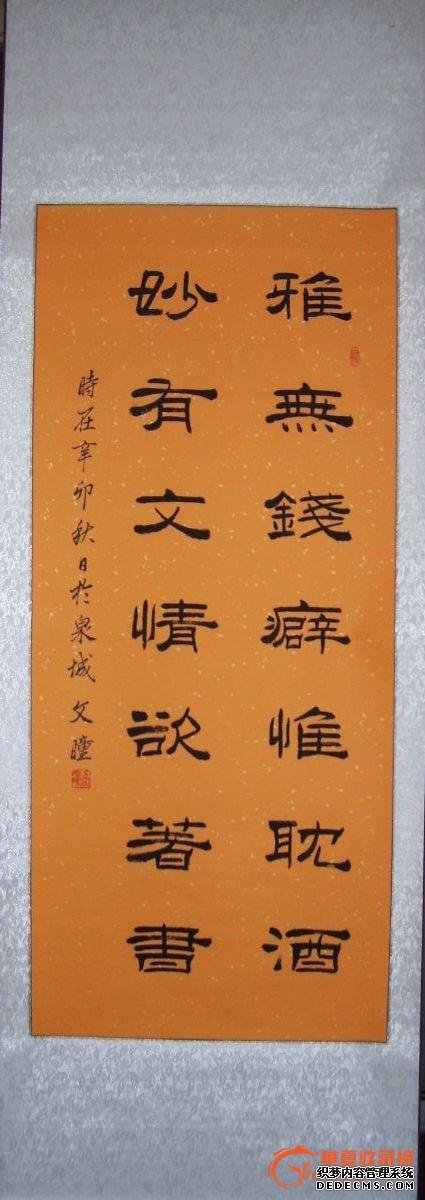 雅無錢癖惟耽酒
妙有文情欲著書
時在辛卯秋日於泉城文瞳
華夏收藏網
织梦内容管理系统
DEDECMS.COM